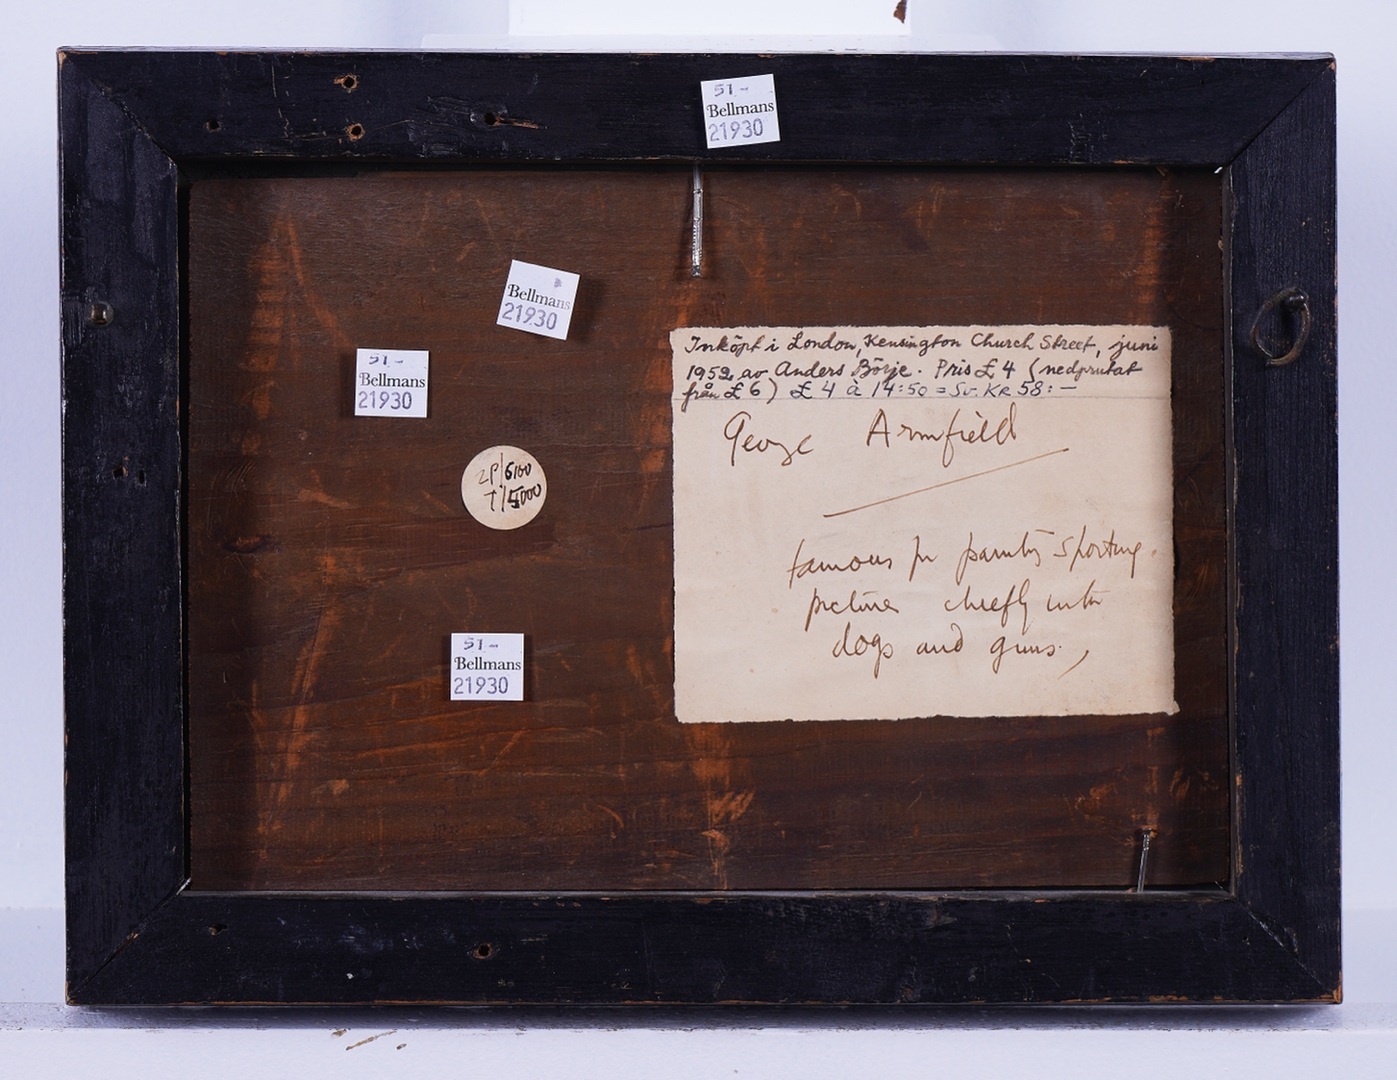 51-
Bellmans
21930
Bellmans
21930
51-
Bellmans
21930
2P/6100
T/5000
51-
Bellmans
21930
Inköpt i London, Kensington Church Street, juni
1952 av Anders Börje. Pris £ 4 (nedprutat
från £ 6) £ 4 à 14:50 = Sv. KR 58:-
George Armfield
famous for painting sporting
pictures chiefly with
dogs and guns,